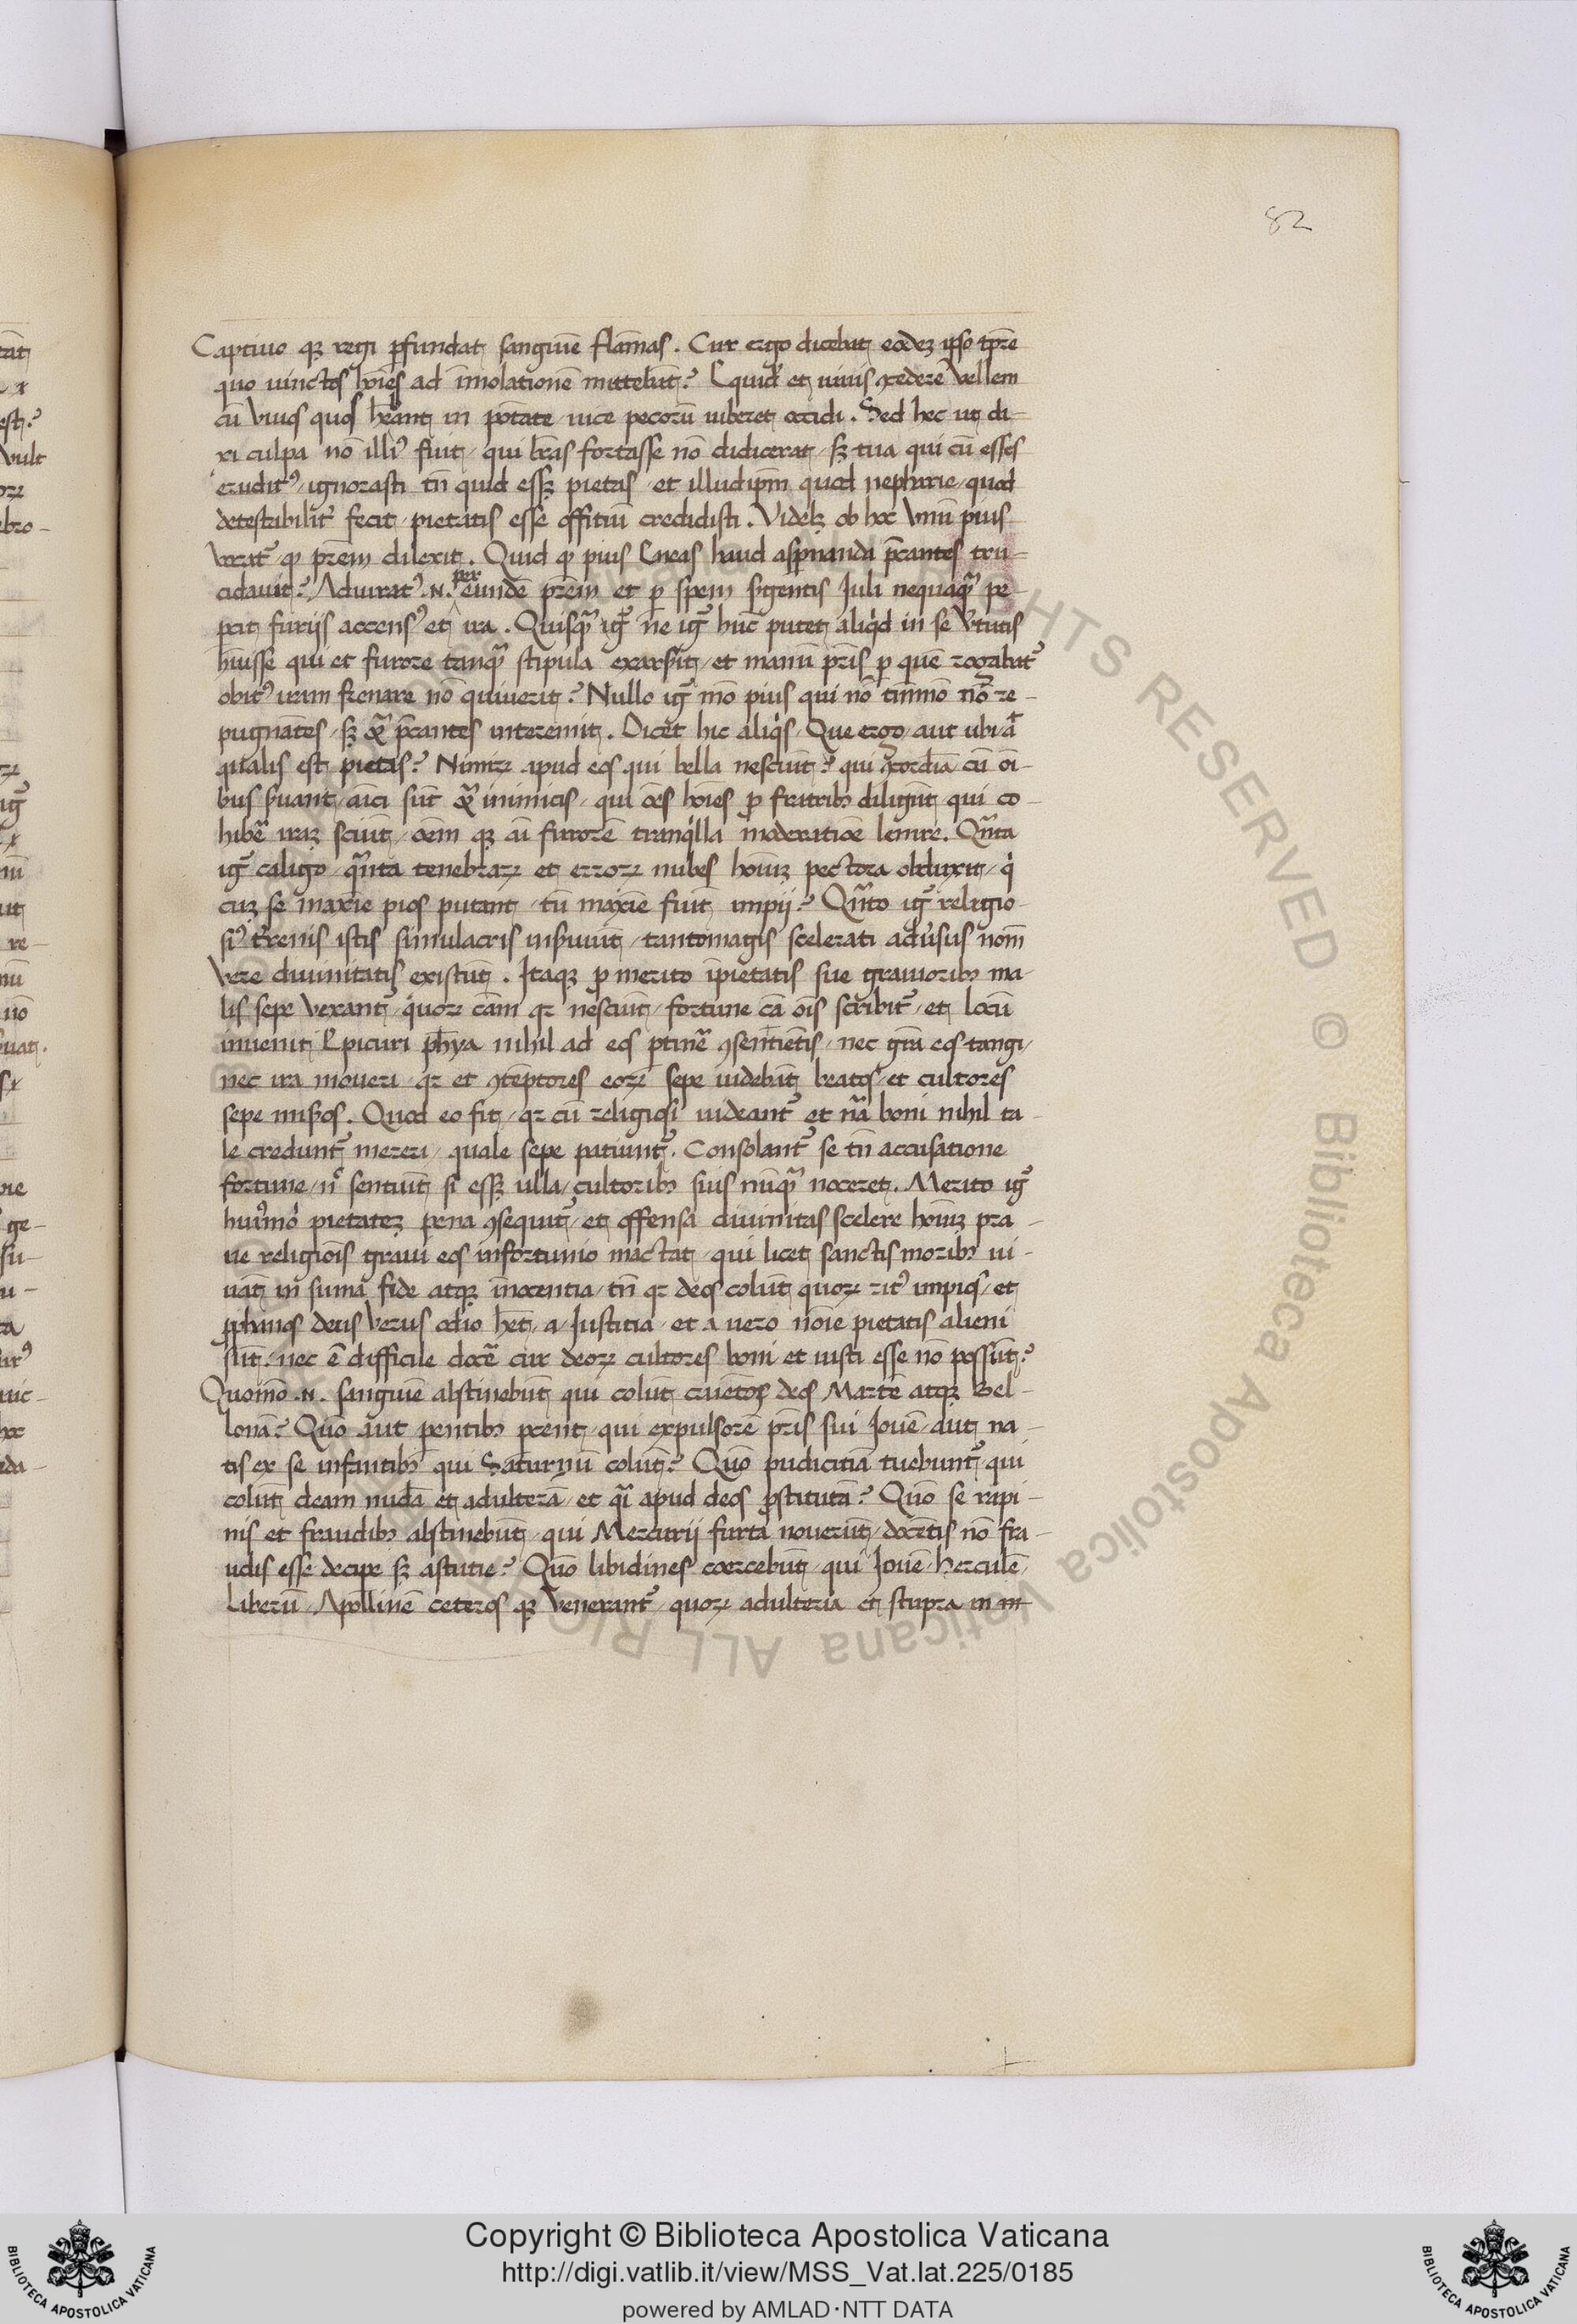 82
Captiuo qꝫ regi ꝑfundat sanguīe flāmas . Cur ergo dicebat eodeꝫ ipso tp̄re
quo uinctos ho͞ies ad īmolationē mittebāt ? Equid᷒ et uiuis ꝯcedere Vellem
cū Viuos quos h͞eant in po͞tate / uice pecorū iuberet occidi . Sed hec ut di-
xi culpa nō illiꝰ fuit / qui l͞ras fortasse nō didicerat / sꝫ tua qui cū esses
eruditꝰ / ignorasti tn̄ quid essꝫ pietas / et illud ip̄m quod nepharie / quod
detestabilit᷒ fecit / pietatis esse offitiū credidisti . Videlꝫ ob hoc Vnū pius
Vocat᷒ qꝫ pr̄em dilexit . Quid ꝙ pius Eneas haud aspernanda p̄cantes tru-
cidauit ? Adiuratꝰ .N. per eundē pr̄em et ꝑ spem s᷒gentis Juli nequaqᷓ pe-
pcit furijs accensꝰ et ira . Quisqᷓ igᷓ ne igᷓ hūc putet aliqͥd in se V᷒tutis
h͞uisse qui et furore tanqᷓ stipula exarsit / et manū pr̄is ꝑ quē rogabat᷒
obitꝰ iram frenare nō quiuerit ? Nullo igᷓ mō pius qui nō tm̄mō nō re-
pugnātes / sꝫ &ᷓ p̄cantes interemit . Dicet hic aliqͥs / Que ergo / aut ubi ā
qualis est pietas ? Nimiꝝ apud eos qui bella nesciūt ? qui ꝯcordīa cū oī-
bus s᷒uant / aīci sūt &ᷓ inimicis / qui o͞es ho͞ies ꝓ fratribꝫ diligūt qui co-
hibē iraꝫ sciūt / oēm qꝫ aī furorē tranqͥlla moderatiōe lenire . Qᷓnta
igᷓ caligo / qᷓnta tenebraꝝ et erroꝝ nubes hoīuꝫ pectora obduxit / qͥ
cuꝫ se maxīe pios putant / tū maxīe fiūt impij ? Qᷓnto igᷓ religio-
siꝰ t᷒renis istis simulacris ins᷒uiūt / tantomagis scelerati adu᷒sus nom̄
Vere diuinitatis existūt . Itaqꝫ ꝓ merito īpietatis sue grauioribꝫ ma-
lis sepe Vexant᷒ / quoꝝ cām qꝛ nesciūt / fortune cā oīs scribit᷒ / et locū
inuenit Epicuri ph͞ya nihil ad eos ꝑtinē ꝯsentiētis / nec gr̄a eos tangi /
nec ira moueri / qꝛ et ꝯtēptores eoꝝ sepe uidebāt beatos / et cultores
sepe mis᷒os . Quod eo fit / qꝛ cū religiosi uideant᷒ et nā boni nihil ta-
le credunt᷒ mereri / quale sepe patiunt᷒ . Consolant᷒ se tn̄ accusatione
fortune / nͨ sentiūt si essꝫ ulla / cultoribꝫ suis nūqᷓ noceret . Merito igᷓ
huiꝰmōi pietateꝫ pena ꝯsequit᷒ / et offensa diuinitas scelere hoīuꝫ pra-
ue religiōis graui eos infortunio mactat / qui licet sanctis moribꝫ ui-
uāt in suma fide atqꝫ īnocentia / tn̄ qꝛ deos colūt quoꝝ ritꝰ impios / et
ꝓphanos deus Verus odio h͞et / a Justitia / et a uero noīe pietatis alieni
sūt . nec ē difficile docē cur deoꝝ cultores boni et iusti esse nō possūt ?
Quomō .N. sanguīe abstinebūt qui colūt cruētos deos Martē atqꝫ Bel-
lonā ? Quō aut pentibꝫ pcent / qui expulsorē pr̄is sui Jouē / aut na-
tis ex se infantibꝫ qui Saturnū colūt ? Quō pudicitiā tuebunt᷒ qui
colūt deam nudā et adulterā / et qᷓ apud deos ꝓstitutā ? Quō se rapi-
nis et fraudibꝫ abstinebūt / qui Mercurij furta nouerūt / docētis nō fra-
udis esse decipe sꝫ astutie ? Quō libidines coercebūt / qui Jouē / Herculē /
Liberū / Apollinē ceteros qꝫ Venerant᷒ / quoꝝ adulteria et stupra in m
Copyright © Biblioteca Apostolica Vaticana
http://digi.vatlib.it/view/MSS_Vat.lat.225/0185
powered by AMLAD·NTT DATA